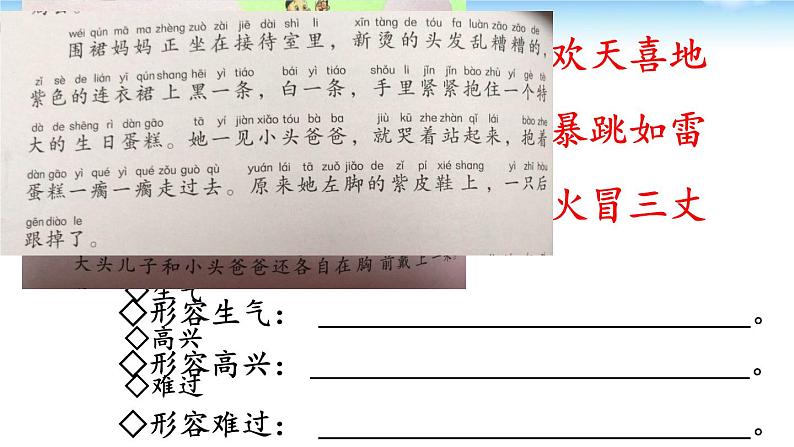 wéi qún mā ma zhèng zuò zài jiē dài shì li xīn tàng de tóu fa luàn zāo zāo de
围裙妈妈正坐在接待室里，新烫的头发乱糟糟的，
zǐ sè de lián yī qún shang hēi yì tiáo bái yì tiáo shǒu li jǐn jǐn bào zhù yí gè tè
紫色的连衣裙上黑一条，白一条，手里紧紧抱住一个特
dà de shēng rì dàn gāo tā yí jiàn xiǎo tóu bà ba jiù kū zhe zhàn qǐ lái bào zhe
大的生日蛋糕。她一见小头爸爸，就哭着站起来，抱着
dàn gāo yì qué yì qué zǒu guò qù yuán lái tā zuǒ jiǎo de zǐ pí xié shang yì zhī hòu
蛋糕一瘸一瘸走过去。原来她左脚的紫皮鞋上，一只后
gēn diào le
跟掉了。
大头儿子和小头爸爸还各自在胸前戴上一
欢天喜地
暴跳如雷
火冒三丈
◇生气
◇形容生气：。
◇高兴
◇形容高兴：。
◇难过
◇形容难过：。